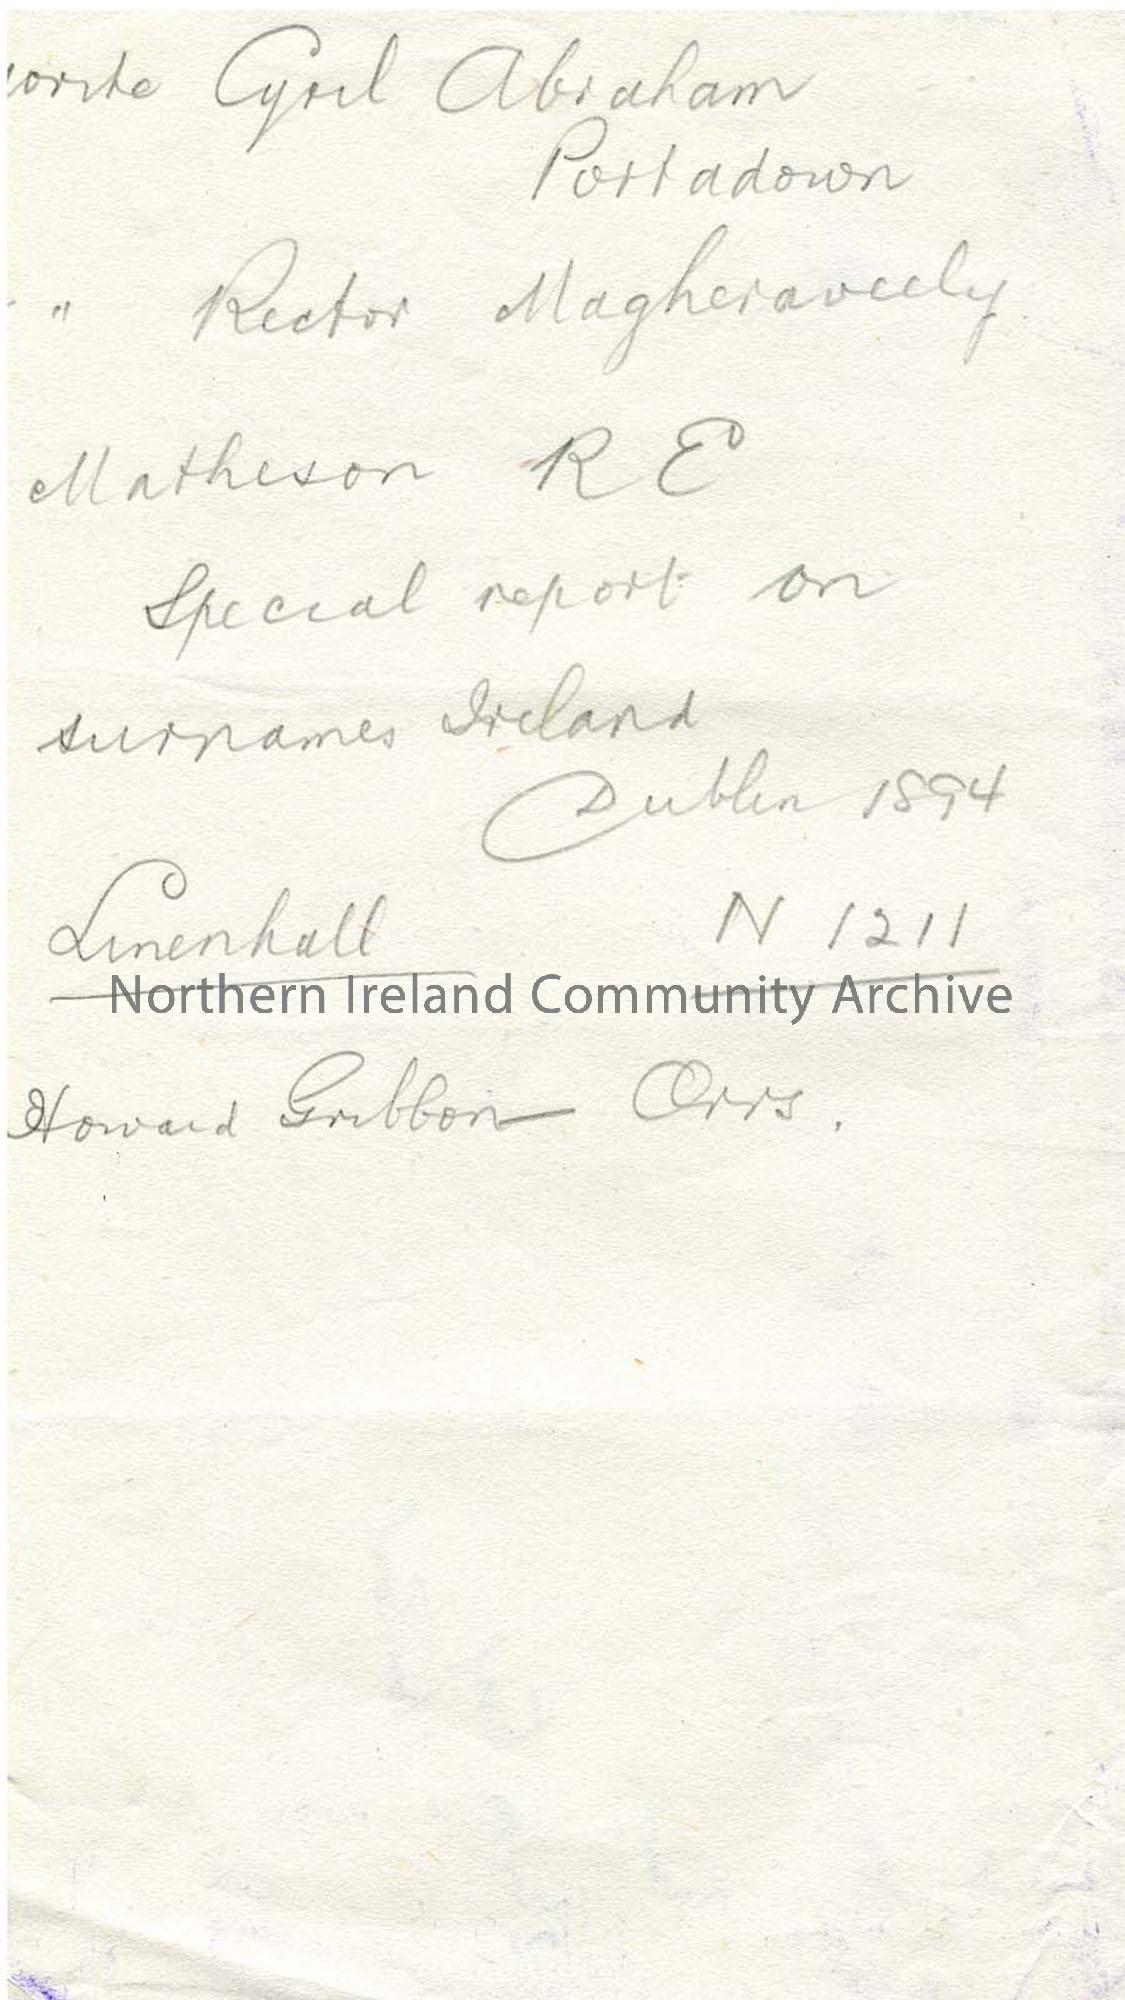 write Cyril Abraham
Portadown
" Rector Magheraveely
Matheson R E
Special report on
surnames Ireland
Dublin 1894
Linenhall N 1211
Northern Ireland Community Archive
Howard Gribbon Orrs.